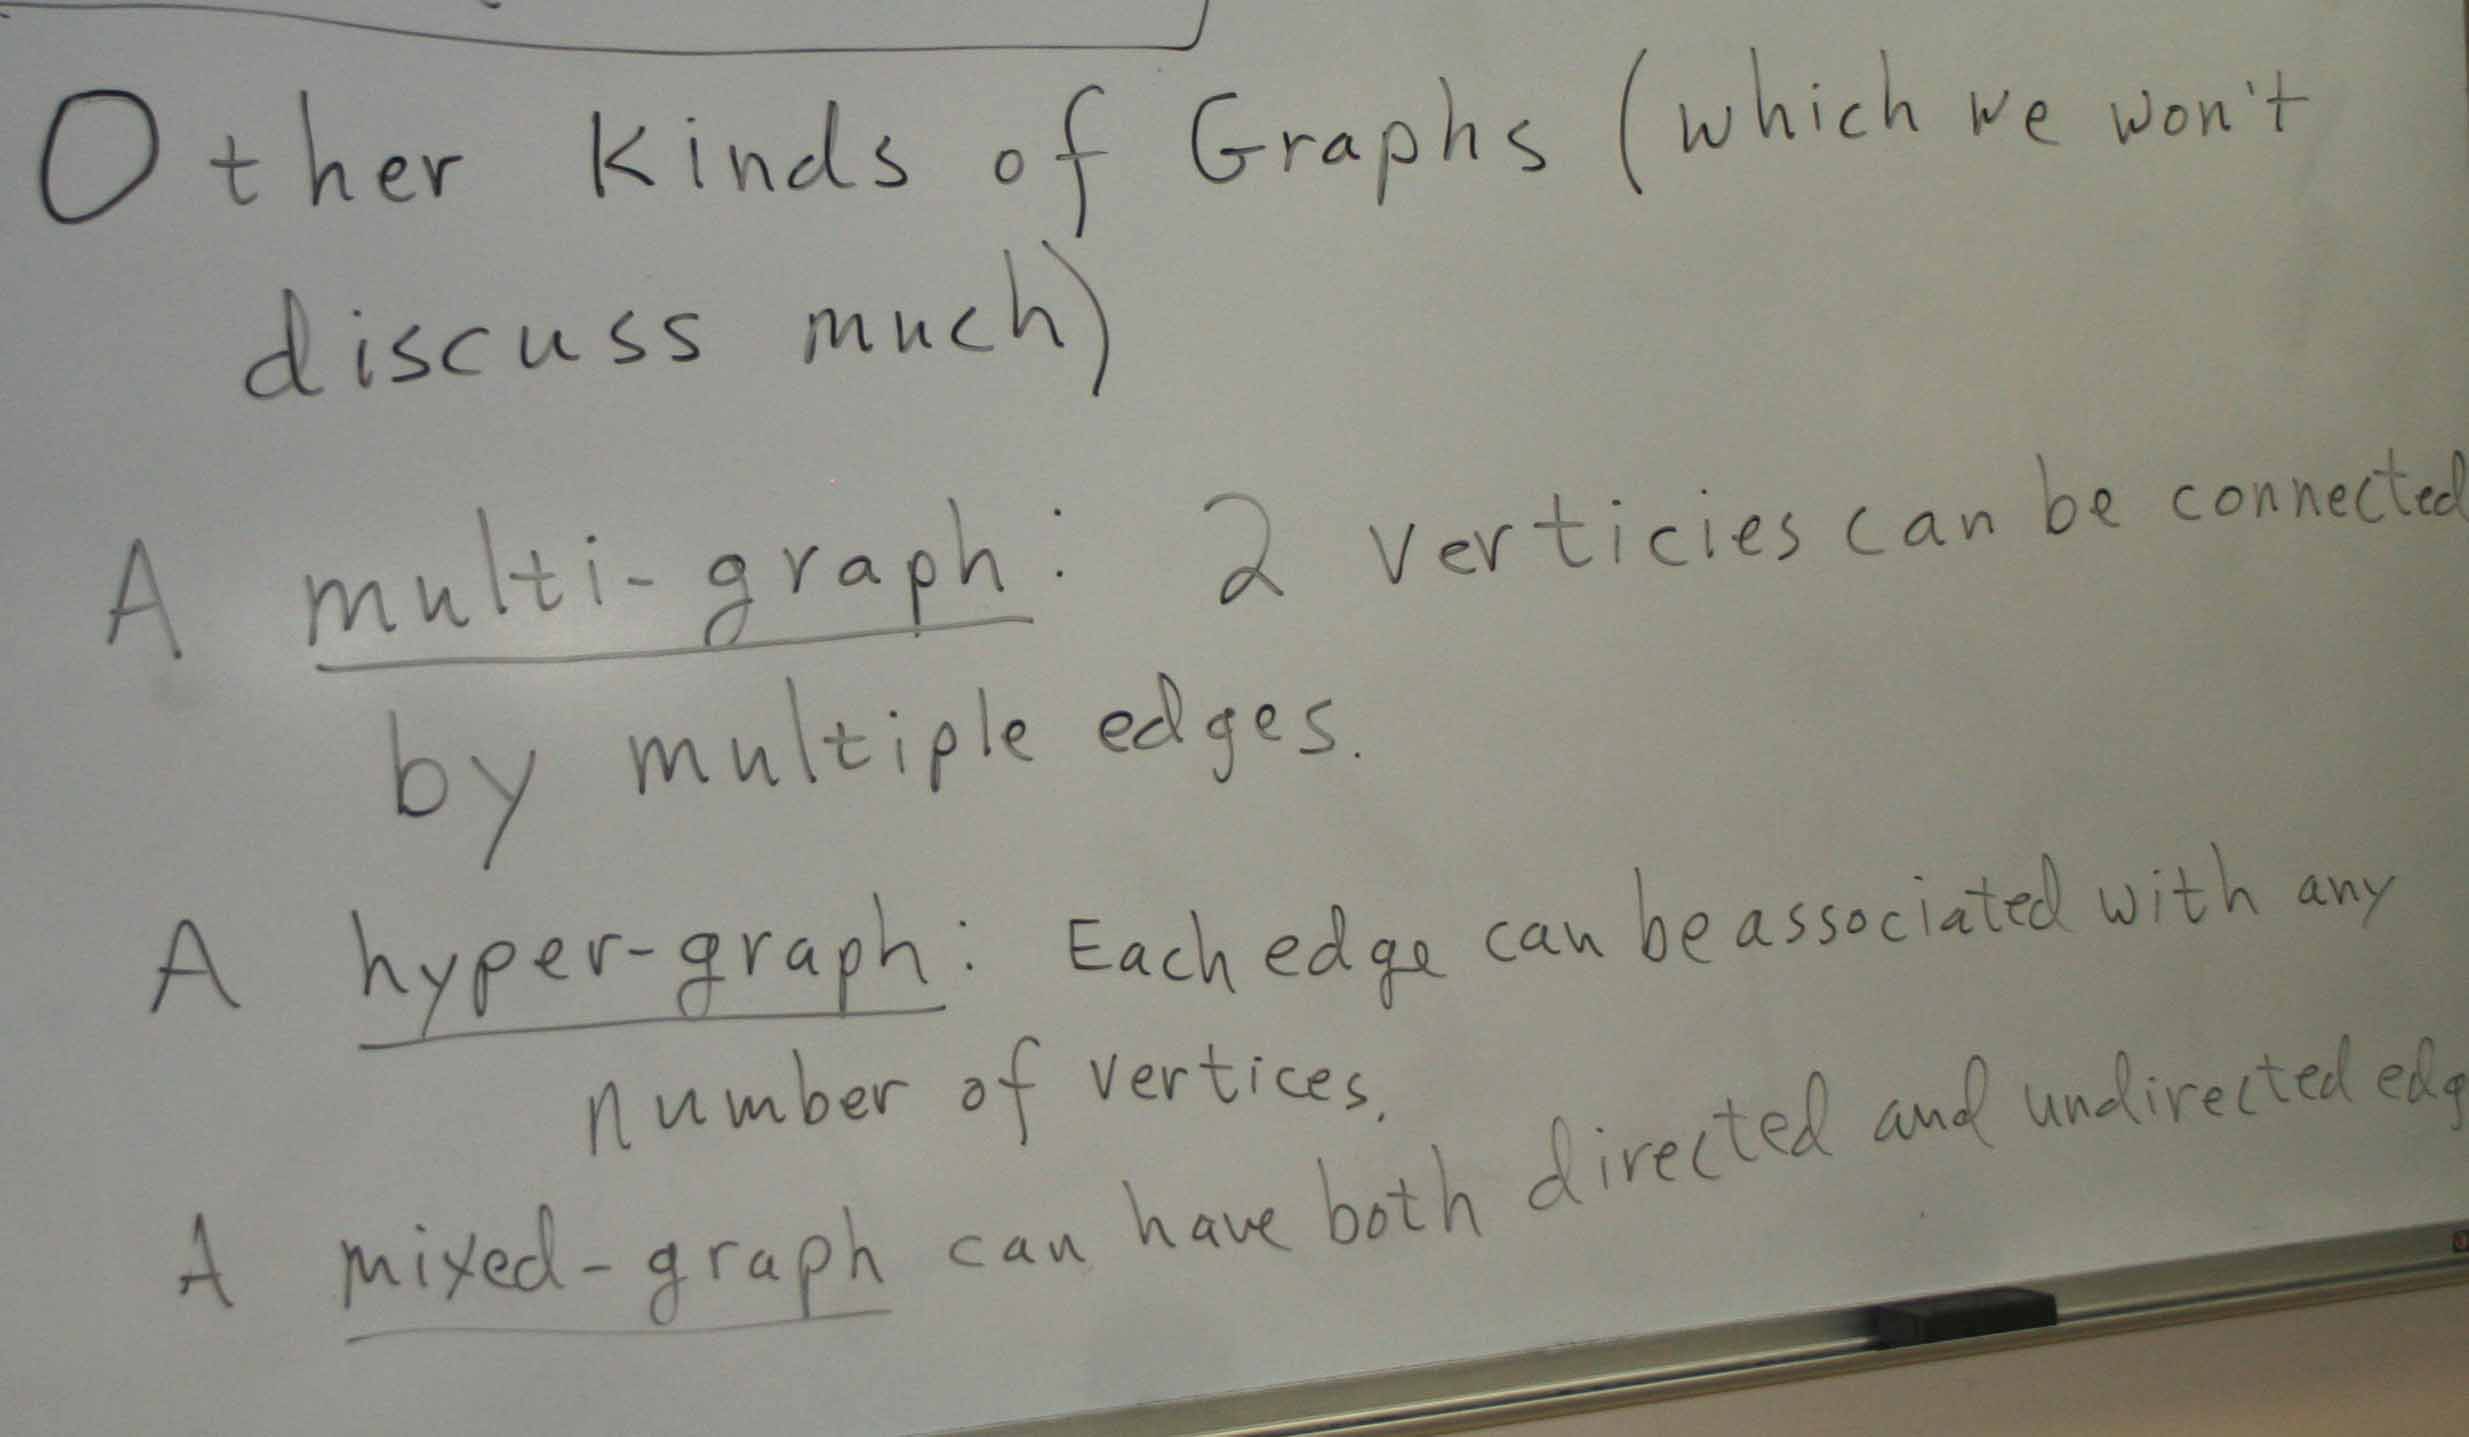 Other Kinds of Graphs (which we won't
discuss much)
A multi-graph: 2 verticies can be connected
by multiple edges.
A hyper-graph: Each edge can be associated with any
number of vertices.
A mixed-graph can have both directed and undirected edg